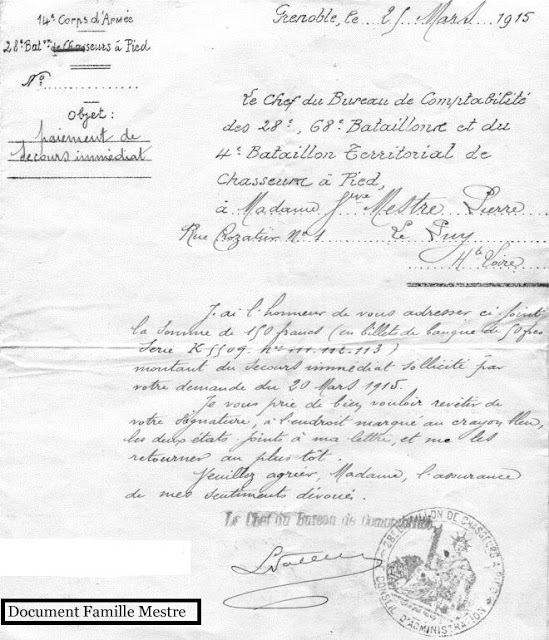 14e Corps d'Armée
28e Bat. de Chasseurs à Pied
No
Objet :
paiement de
secours immédiat
Grenoble, le 25 Mars 1915
Le Chef du Bureau de Comptabilité
des 28e, 68e Bataillons et du
4e Bataillon Territorial de
Chasseurs à Pied,
à Madame Mestre Pierre
Rue Crozatier No 1 Le Puy
Hte Loire
J'ai l'honneur de vous adresser ci-joint
la somme de 150 francs (en billets de banque de 50 frcs
Série K 5509. nos 111.112.113)
montant du secours immédiat sollicité par
votre demande du 20 Mars 1915.
Je vous prie de bien vouloir revêtir de
votre signature, à l'endroit marqué au crayon bleu,
les deux états joints à ma lettre, et me les
retourner au plus tôt.
Veuillez agréer, Madame, l'assurance
de mes sentiments dévoués.
Le Chef du Bureau de Comptabilité
28e BATAILLON DE CHASSEURS A PIED
CONSEIL D'ADMINISTRATION
Document Famille Mestre